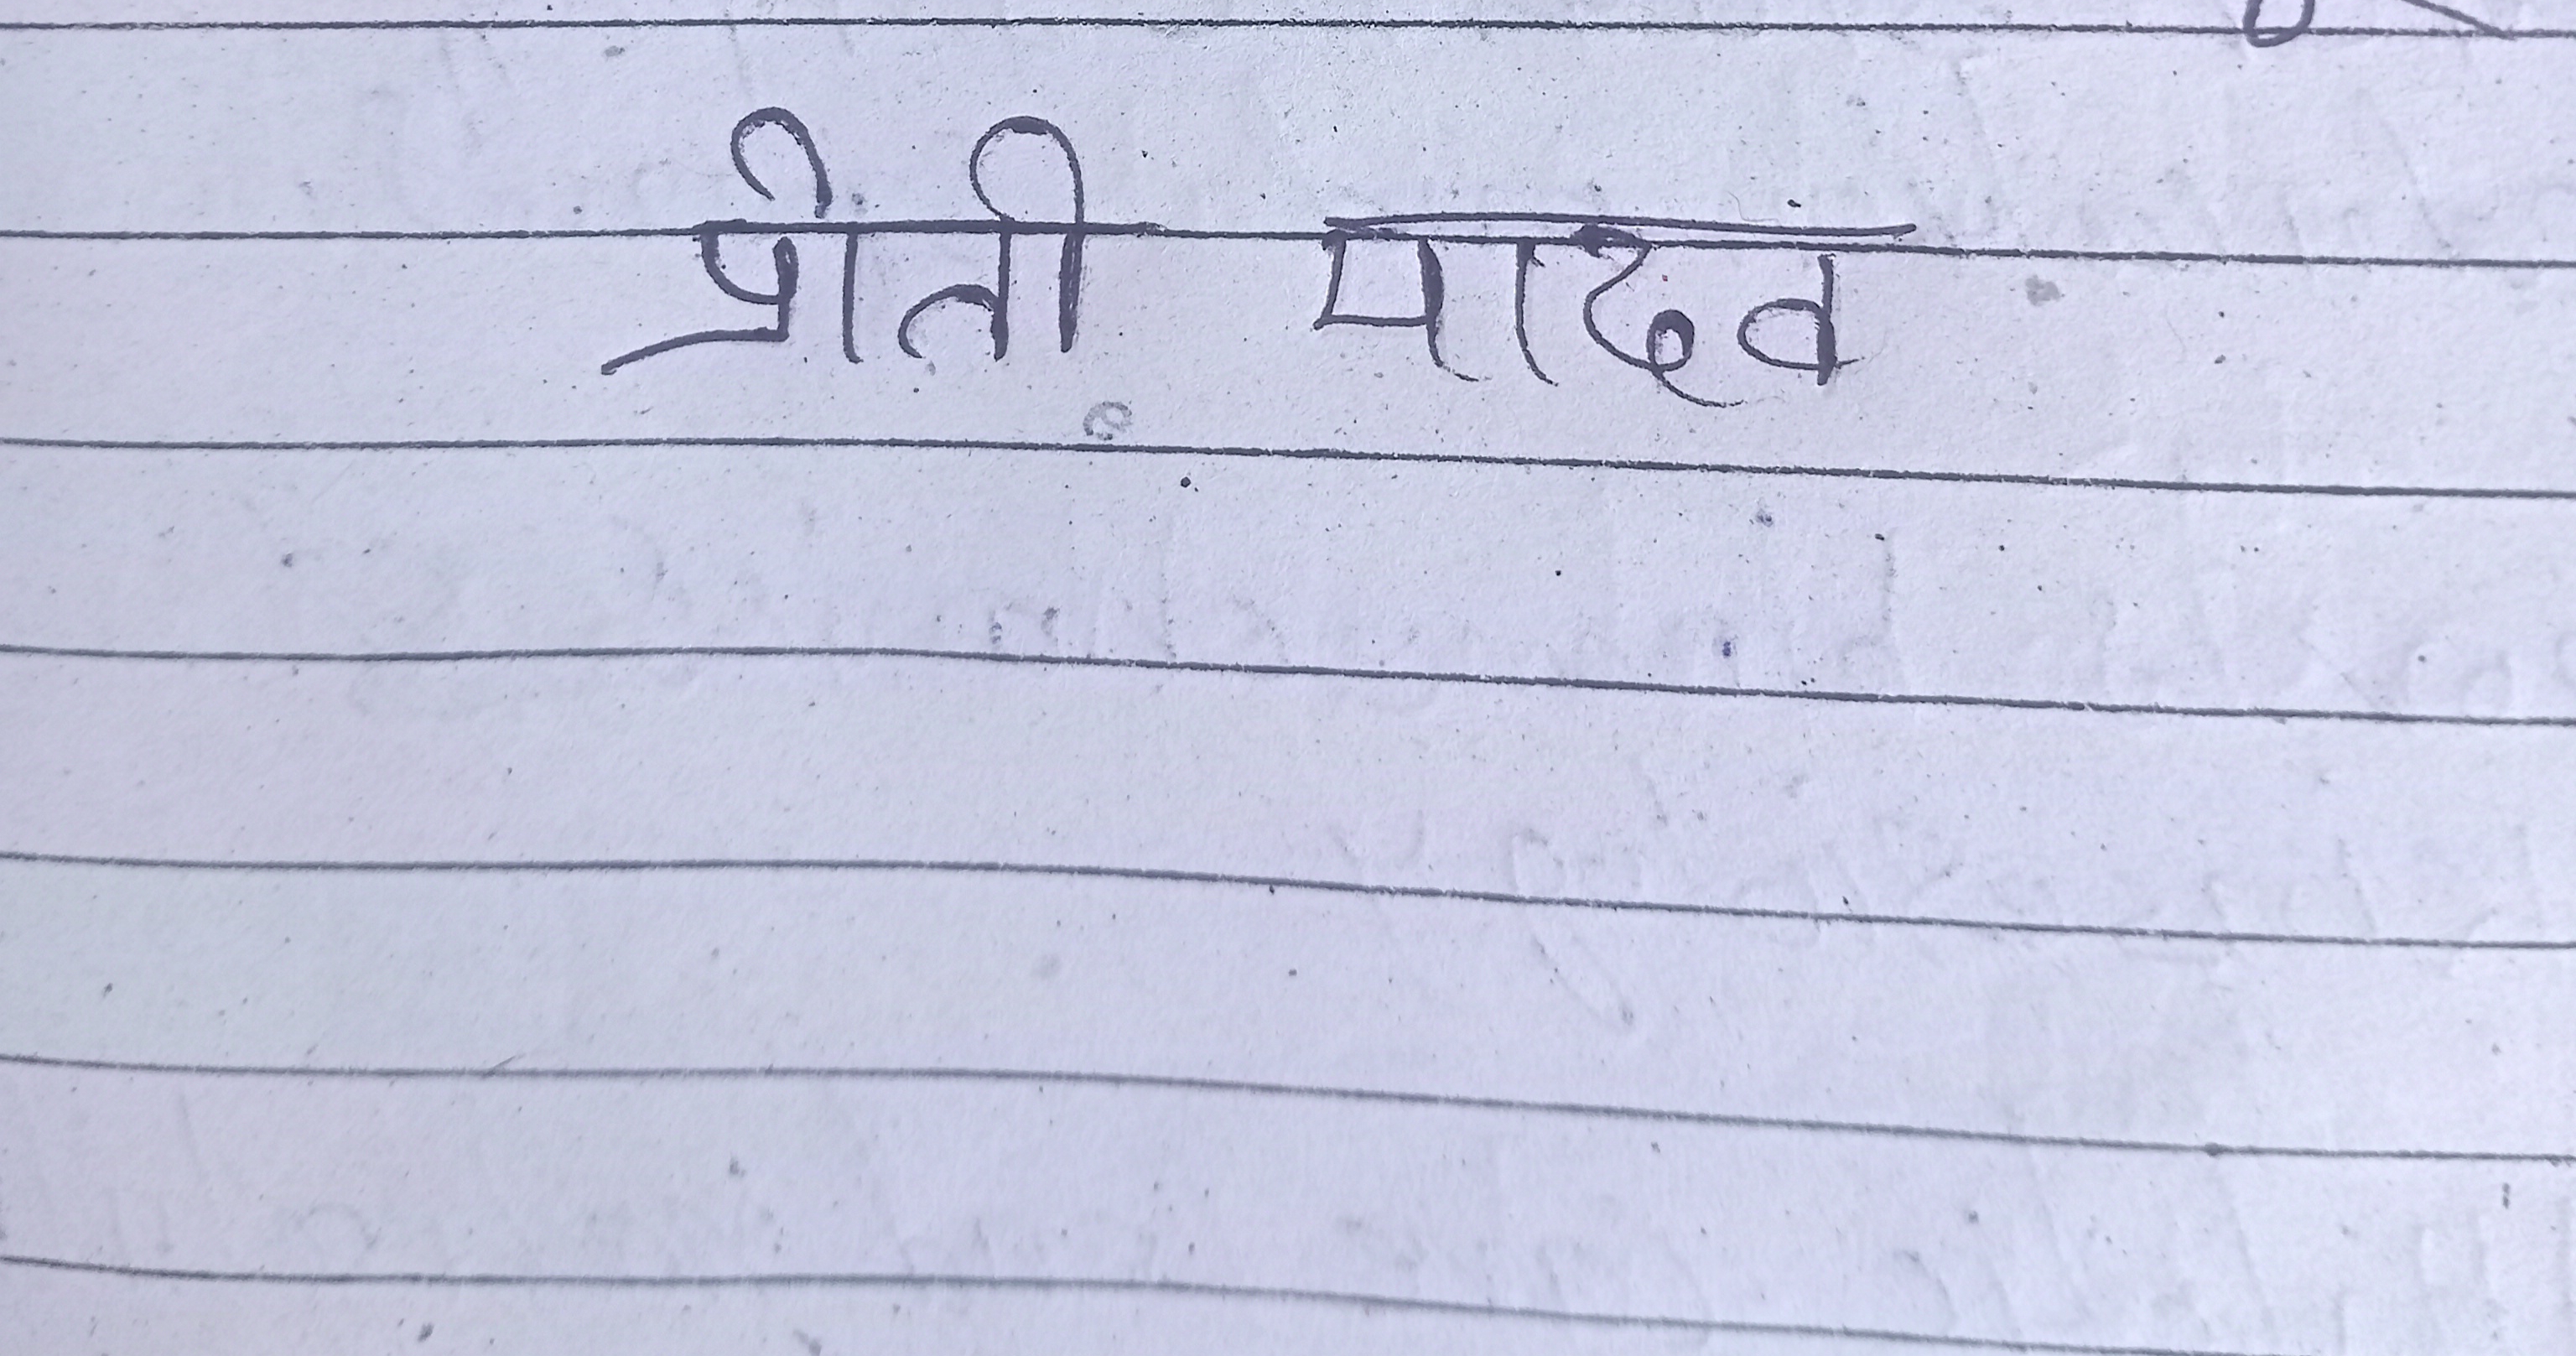 प्रीती यादव